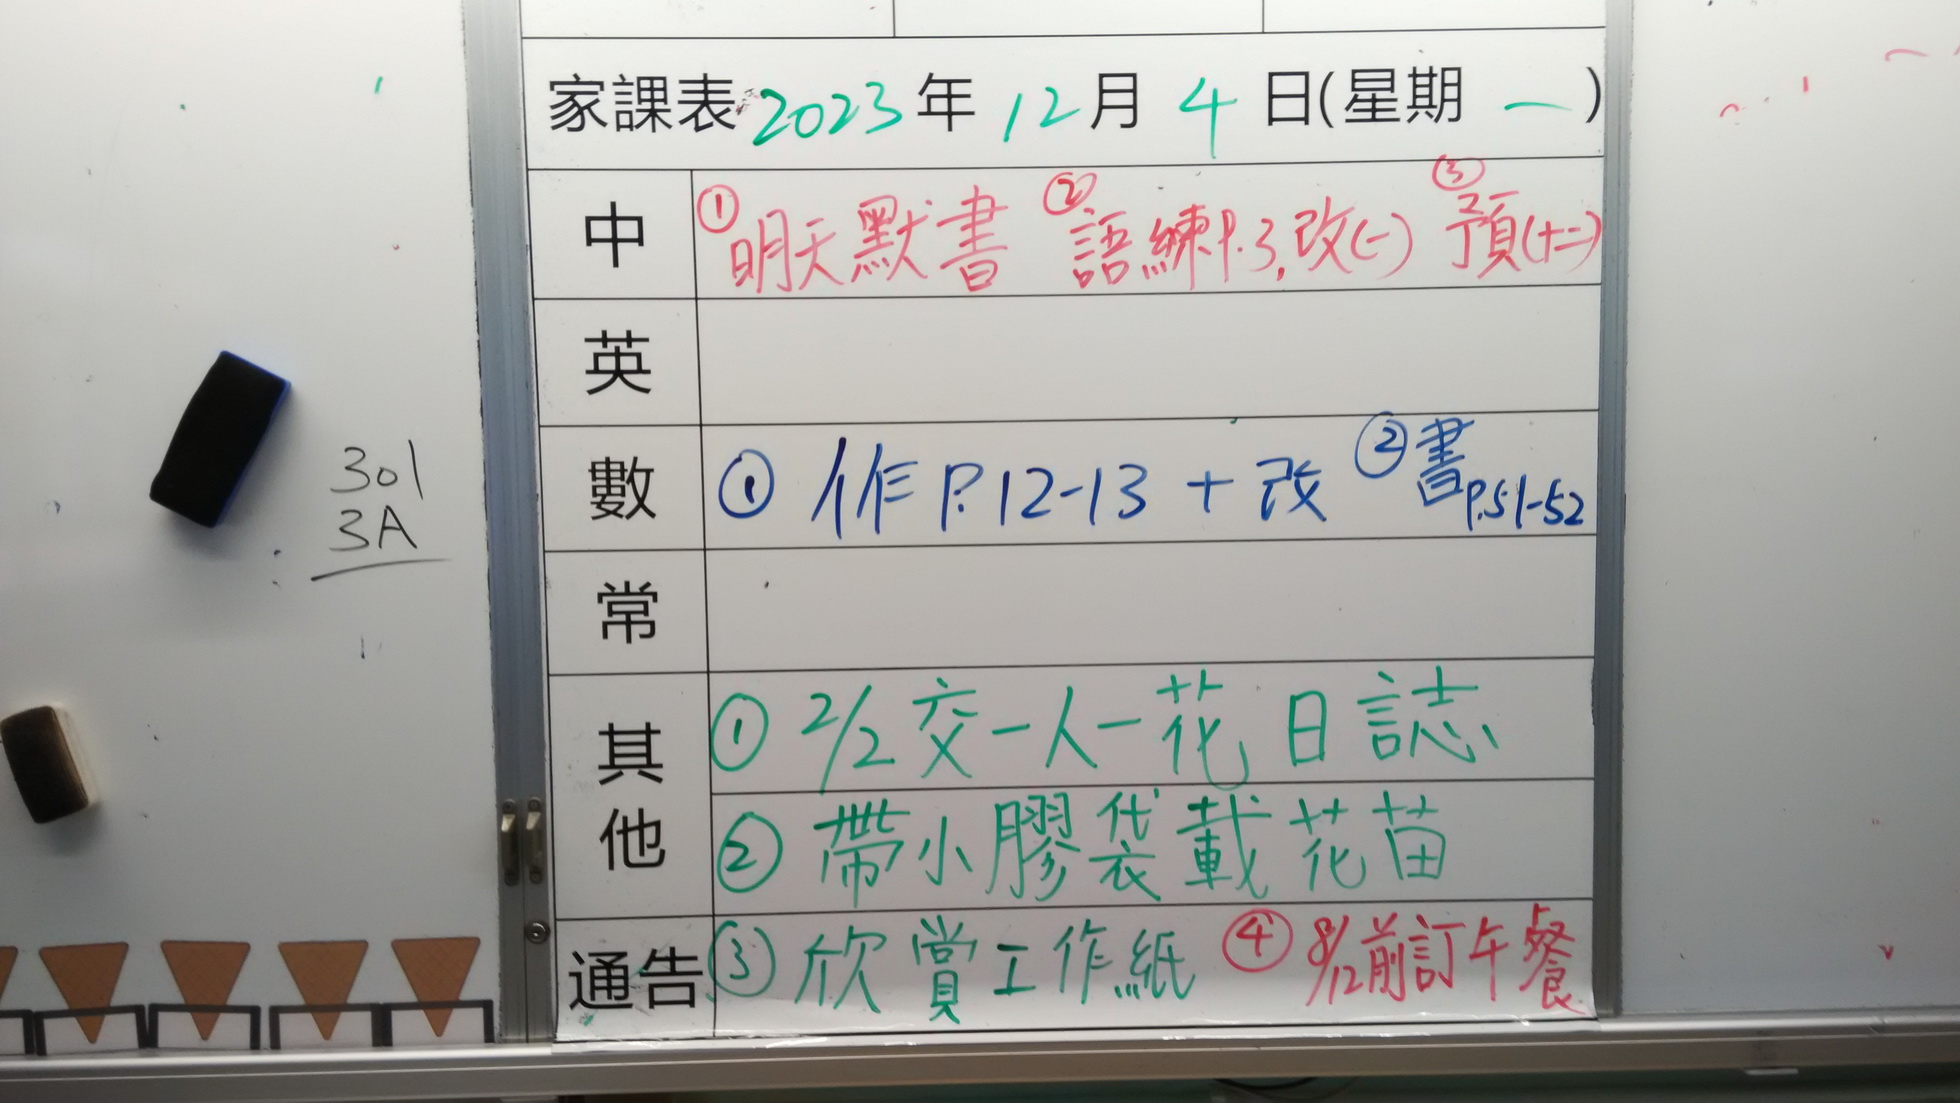 家課表 2023 年 12 月 4 日(星期 一 )
中 ① 明天默書 ② 語練P.3,改(一) ③ 預(十二)
英
數 ① 作 P.12-13 + 改 ② 書 P.51-52
常
301
3A
其他 ① 2/2 交一人一花日誌
② 帶小膠袋載花苗
通告 ③ 欣賞工作紙 ④ 8/12前訂午餐